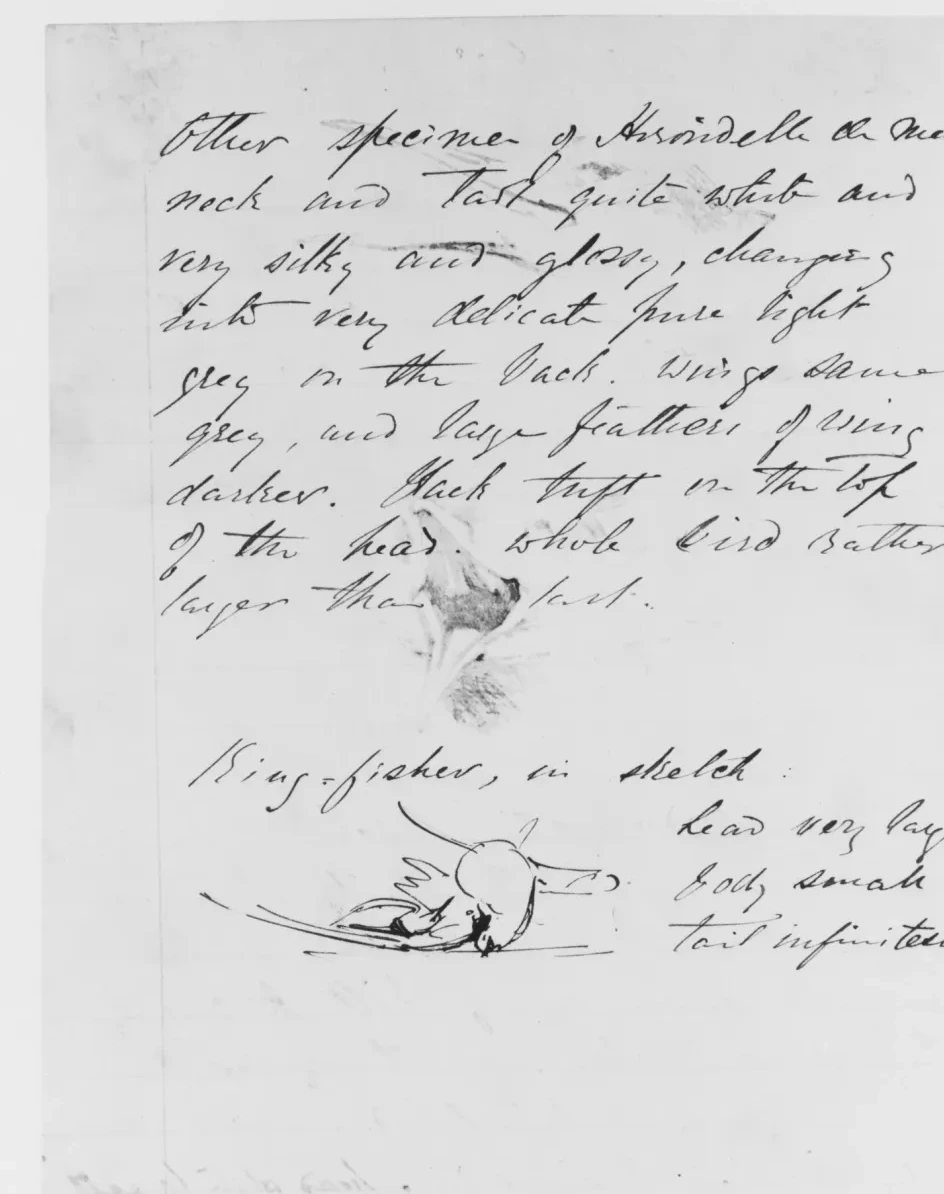 Other specimen of Hirondelle de Me
neck and tail quite white and
very silky and glossy, changing
into very delicate pure light
grey on the back. wings same
grey, and large feathers of wing
darker. black tuft on the top
of the head. whole bird rather
larger than last.
King-fisher, in sketch
head very larg
body small
tail infinites